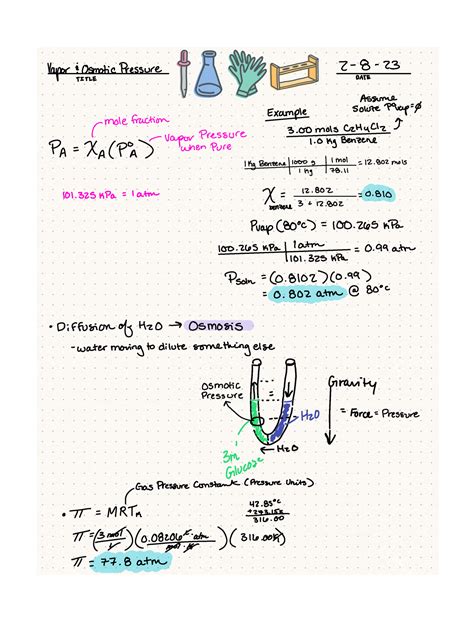 Vapor & Osmotic Pressure
TITLE
2-8-23
DATE
Assume
Solute Pvap = ∅
Example
3.00 mols C₂H₄Cl₂
1.0 Kg Benzene
mole fraction
P_A = X_A (P_A°)
Vapor Pressure
when Pure
1 Kg Benzene | 1000 g | 1 mol = 12.802 mols
1 Kg | 78.11
101.325 KPa = 1 atm
X benzene = 12.802 / 3 + 12.802 = 0.810
Pvap (80°C) = 100.265 KPa
100.265 KPa | 1 atm = 0.99 atm
101.325 KPa
P soln = (0.8102)(0.99)
= 0.802 atm @ 80°C
• Diffusion of H₂O → Osmosis
- water moving to dilute something else
Osmotic
Pressure
Gravity
= Force = Pressure
H₂O
← H₂O
3m
Glucose
Gas Pressure Constant (Pressure Units)
• π = MRT
42.85°C
+ 273.15
316.00
π = (3 mol / L)(0.08206 L·atm / mol·K)(316.00K)
π = 77.8 atm